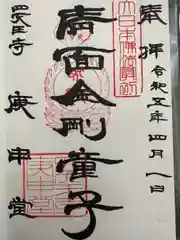 奉拝 令和五年四月一日
大日本佛法最初
青面金剛童子
四天王寺 庚申堂